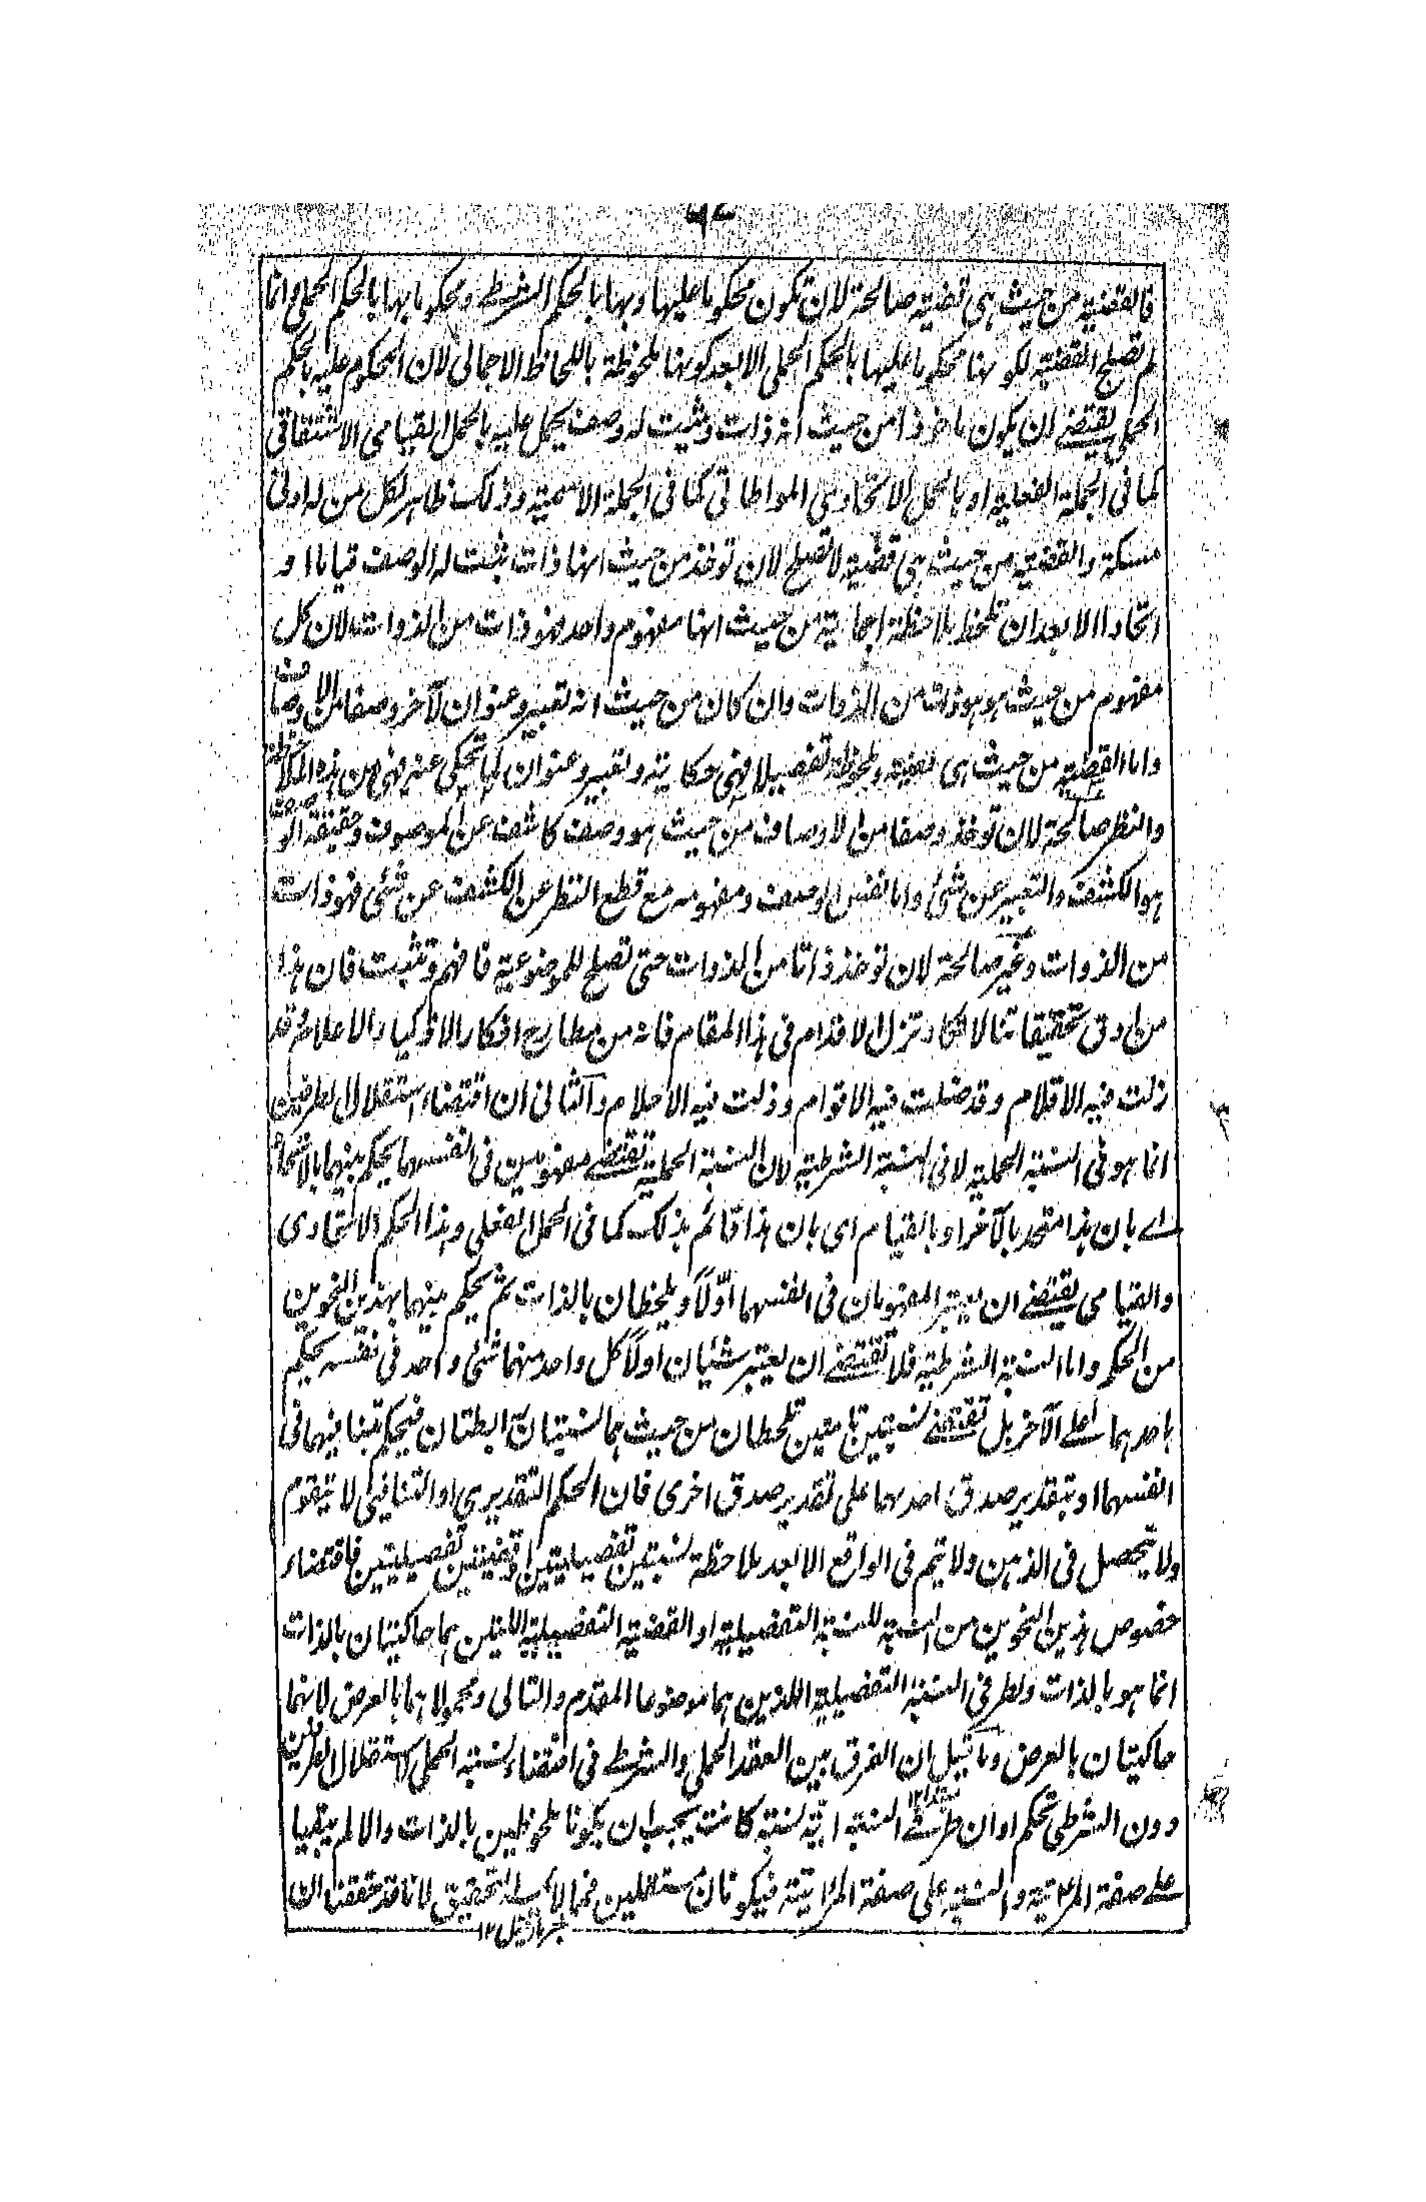 فالقضية من حيث هى قضية صالحة لان تكون محكوما عليها وبها بالحكم الشرطے ومحكوما بها بالحكم الحملى وانما
لم تصلح القضية لكونها محكوما عليها بالحكم الحملى الا بعد كونها ملحوظة باللحاظ الاجمالى لان المحكوم عليه بالحكم
الحملى يقتضے ان يكون ماخوذا من حيث انه ذات وثبت له وصف يحمل عليه بالحمل القيامى الاشتقاقى
كما فى الجملة الفعلية او بالحمل الاتحادى المواطاتى كما فى الجملة الاسمية وذلك ظاهر لكل من له ادنى
مسكة والقضية من حيث هى قضية لا تصلح لان توخذ من حيث انها ذات يثبت له الوصف قياما او
اتحادا الا بعد ان تلحظ بملاحظة اجمالية من حيث انها مفهوم واحد فهو ذات من الذوات لان كل
مفهوم من حيث هو هو ذات من الذوات وان كان من حيث انه تعبير وعنوان لآخر وصفا من الاوصاف
واما القضية من حيث هى قضية وملحوظة تفصيلا فهى حكاية وتعبير وعنوان لما تحكى عنه فهى من هذه الملاحظة
والنظر صالحة لان توخذ وصفا من الاوصاف من حيث هو وصف كاشف عن الموصوف وحقيقة الوصف
هو الكشف والتعبير عن شئ واما نفس الوصف ومفهومه مع قطع النظر عن الكشف عن شئى فهو ذات
من الذوات وغير صالحة لان توخذ ذاتا من الذوات حتى تصلح للموضوعية فافهم وتثبت فان هذا
من ادق تحقيقاتنا لا تكاد تزل الاقدام فى هذا المقام فانه من مطارح افكار الاذكياء والاعلام وقد
زلت فيه الاقلام وقد ضلت فيه الاقوام وذلت فيه الاحلام والثانى ان اقتضاء استقلال الطرفين
انما هو فى النسبة الحملية لا فى النسبة الشرطية لان النسبة الحملية تقتضے مفهومين فى انفسهما يحكم بينهما بالاتحاد
اے بان هذا متحد بالآخر او بالقيام اى بان هذا قائم بذلك كما فى الحمل الفعلى وهذا الحكم الاتحادى
والقيامى يقتضے ان يعتبر المفهومان فى انفسهما اوّلاً ويلحظان بالذات ثم يحكم بينهما بهذين النحوين
من الحكم واما النسبة الشرطية فلا تقتضے ان يعتبر شئيان اولاً كل واحد منهما شئ واحد فى نفسه يحكم
باحدهما على الآخر بل تقتضے نسبتين تامتين تلحظان من حيث هما نسبتان رابطتان فيحكم بتنافيهما فى
انفسهما او بتقدير صدق احدهما على تقدير صدق اخرى فان الحكم التقديرى او التنافى لا يتقوم
ولا يتحصل فى الذهن ولا يتم فى الواقع الا بعد ملاحظة نسبتين تفصيليتين او قضيتين تفصيليتين فاقتضاء
خصوص هذين النحوين من النسبة للنسبة التفصيلية او القضية التفصيلية اللتين هما حاكيتان بالذات
انما هو بالذات ولطرفى النسبة التفصيلية اللذين هما موضوعا المقدم والتالى ومحمولاهما بالعرض لانهما
حاكيتان بالعرض وما قيل ان الفرق بين العقد الحملى والشرطے فى اقتضاء نسبة الحملى استقلال الطرفين
دون الشرطى تحكم او ان طرفے النسبة اية نسبة كانت يجب ان يكونا ملحوظين بالذات والا لم يبقيا
علے صفة المرئية والنسبة على صفة المرآتية فيكونان مستقلين فمما لا سبيل له الى تحقيق لانا قد حققنا ان